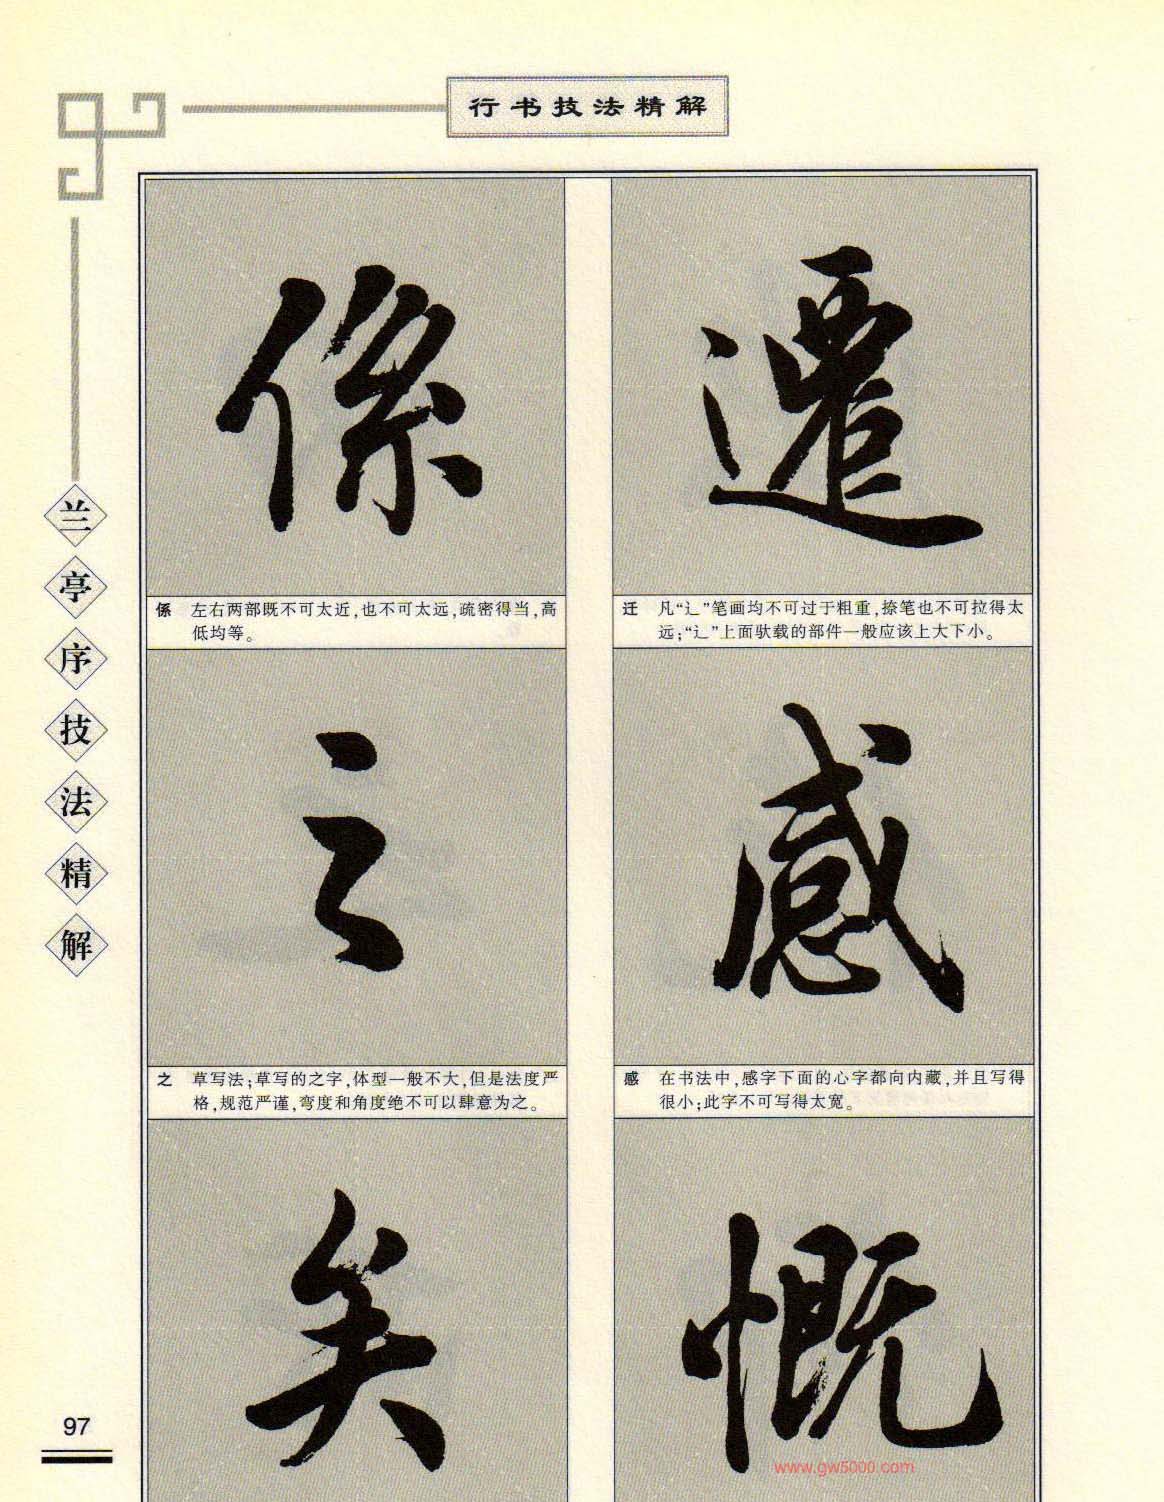 行书技法精解
兰亭序技法精解
遷
迁 凡“辶”笔画均不可过于粗重,捺笔也不可拉得太
远;“辶”上面驮载的部件一般应该上大下小。
感
感 在书法中,感字下面的心字都向内藏,并且写得
很小;此字不可写得太宽。
慨
係
係 左右两部既不可太近,也不可太远,疏密得当,高
低均等。
之
之 草写法;草写的之字,体型一般不大,但是法度严
格,规范严谨,弯度和角度绝不可以肆意为之。
矣
97
www.gw5000.com